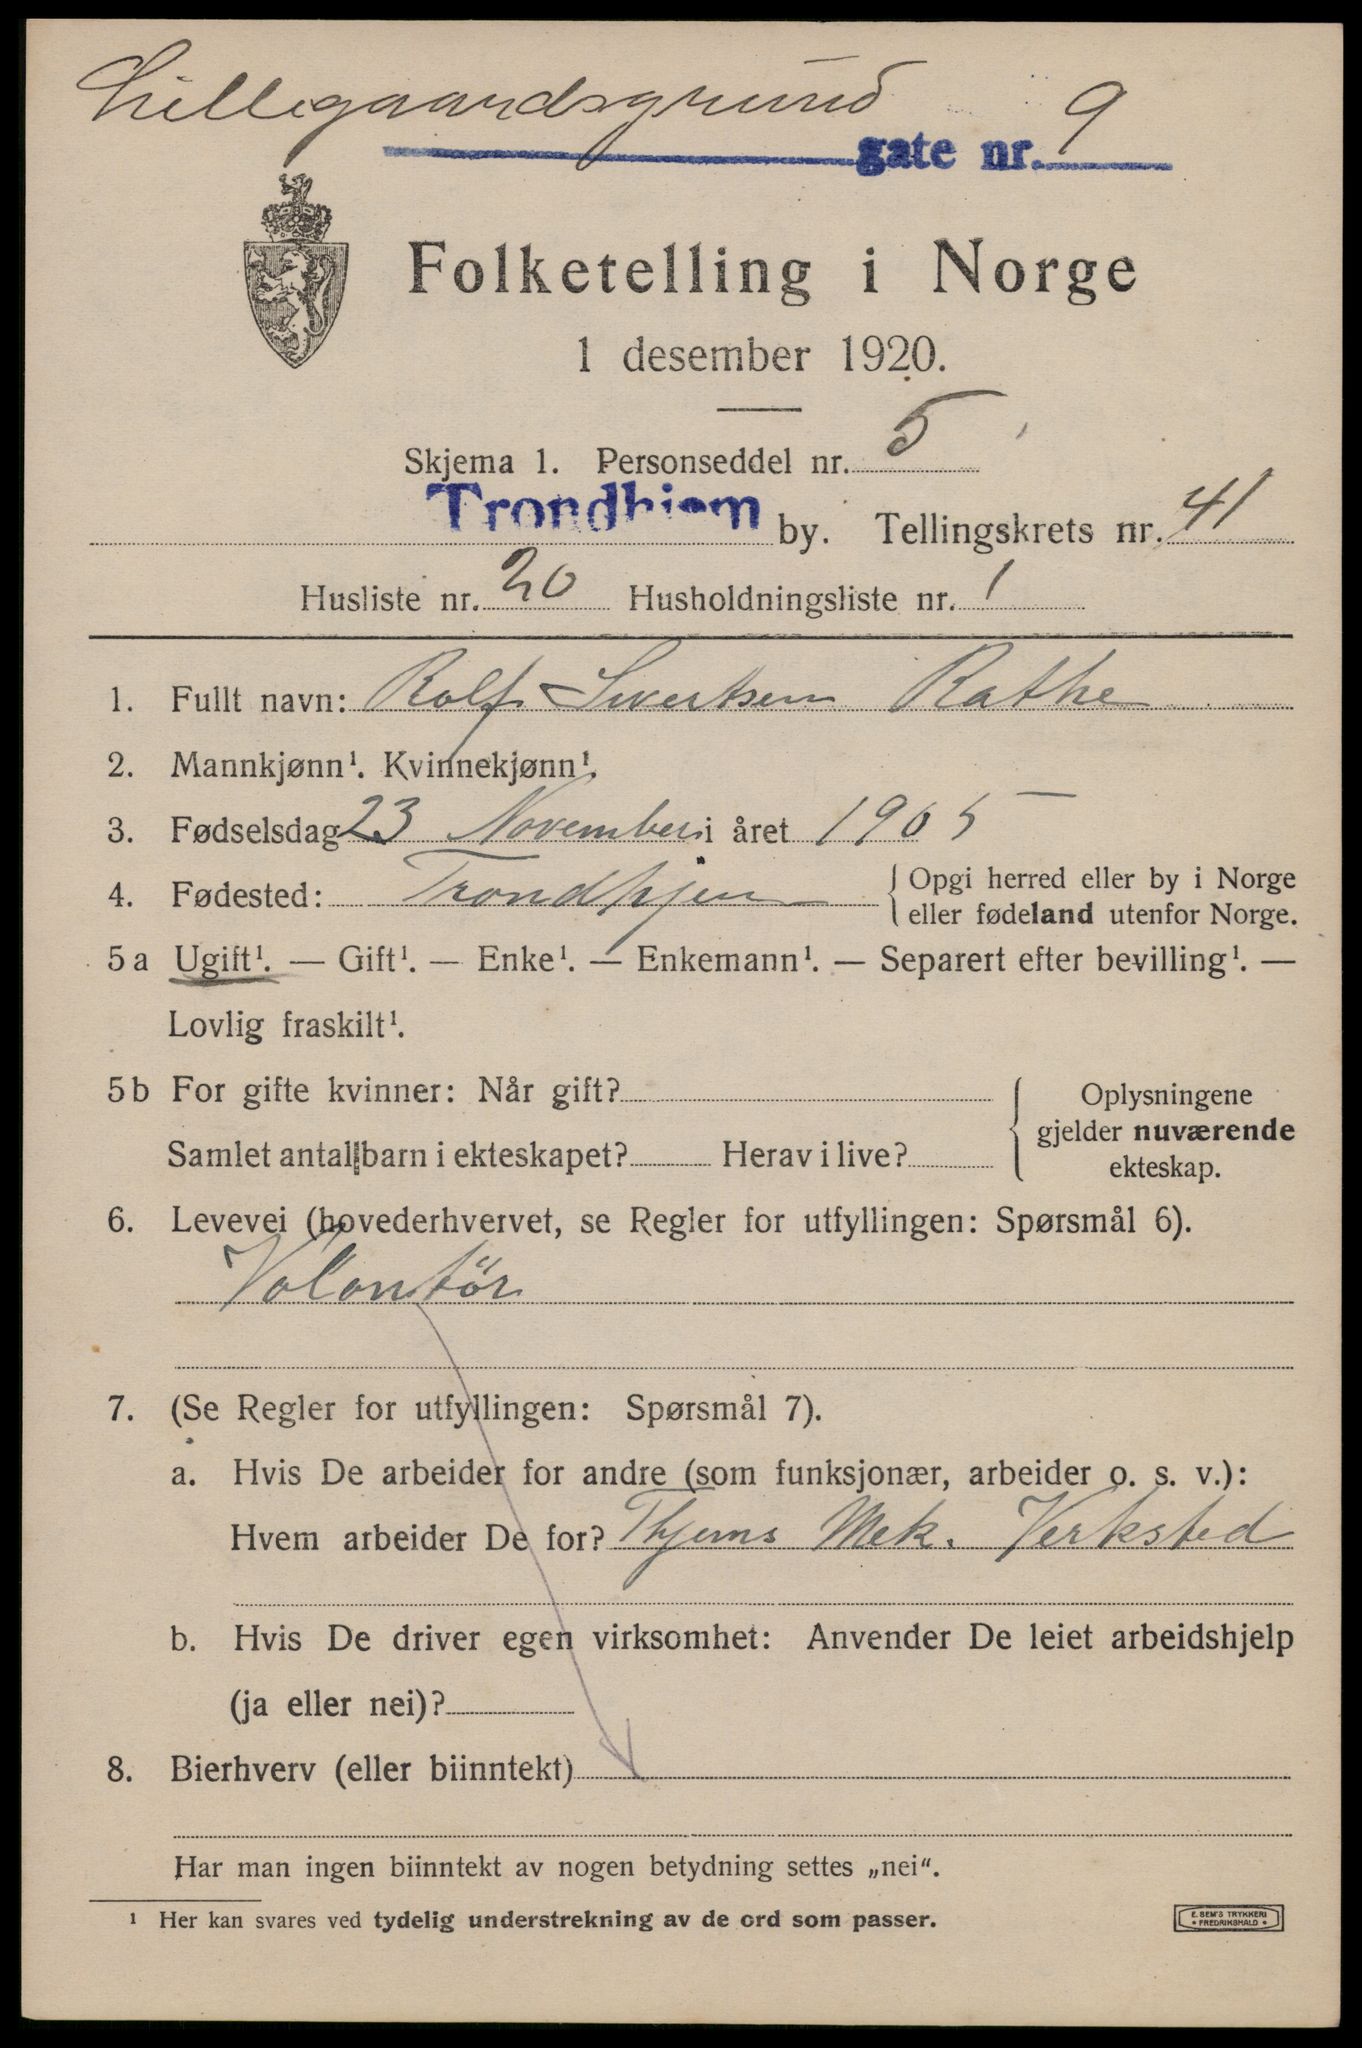 Lillegaardsgrund 9
gate nr.
Folketelling i Norge
1 desember 1920.
Skjema 1. Personseddel nr. 5
Trondhjem by. Tellingskrets nr. 41
Husliste nr. 20 Husholdningsliste nr. 1
1. Fullt navn: Rolf Sivertsen Rathe
2. Mannkjønn¹. Kvinnekjønn¹.
3. Fødselsdag 23 November i året 1905
4. Fødested: Trondhjem { Opgi herred eller by i Norge
eller fødeland utenfor Norge.
5a Ugift¹. — Gift¹. — Enke¹. — Enkemann¹. — Separert efter bevilling¹. —
Lovlig fraskilt¹.
5b For gifte kvinner: Når gift?
Samlet antal barn i ekteskapet? Herav i live?
Oplysningene
gjelder nuværende
ekteskap.
6. Levevei (hovederhvervet, se Regler for utfyllingen: Spørsmål 6).
Volontör
7. (Se Regler for utfyllingen: Spørsmål 7).
a. Hvis De arbeider for andre (som funksjonær, arbeider o. s. v.):
Hvem arbeider De for? Thjems Mek. Verksted
b. Hvis De driver egen virksomhet: Anvender De leiet arbeidshjelp
(ja eller nei)?
8. Bierhverv (eller biinntekt)
Har man ingen biinntekt av nogen betydning settes „nei“.
¹ Her kan svares ved tydelig understrekning av de ord som passer.
E. SEM'S TRYKKERI
• FREDRIKSHALD •